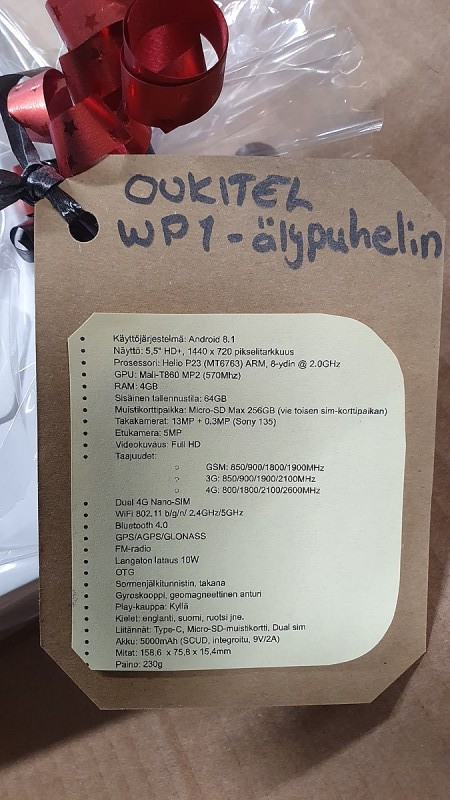 OUKITEL
WP1 - älypuhelin
Käyttöjärjestelmä: Android 8.1
Näyttö: 5,5" HD+, 1440 x 720 pikselitarkkuus
Prosessori: Helio P23 (MT6763) ARM, 8-ydin @ 2.0GHz
GPU: Mali-T860 MP2 (570Mhz)
RAM: 4GB
Sisäinen tallennustila: 64GB
Muistikorttipaikka: Micro-SD Max 256GB (vie toisen sim-korttipaikan)
Takakamerat: 13MP + 0.3MP (Sony 135)
Etukamera: 5MP
Videokuvaus: Full HD
Taajuudet:
GSM: 850/900/1800/1900MHz
3G: 850/900/1900/2100MHz
4G: 800/1800/2100/2600MHz
Dual 4G Nano-SIM
WiFi 802.11 b/g/n/ 2.4GHz/5GHz
Bluetooth 4.0
GPS/AGPS/GLONASS
FM-radio
Langaton lataus 10W
OTG
Sormenjälkitunnistin, takana
Gyroskooppi, geomagneettinen anturi
Play-kauppa: Kyllä
Kielet: englanti, suomi, ruotsi jne.
Liitännät: Type-C, Micro-SD-muistikortti, Dual sim
Akku: 5000mAh (SCUD, integroitu, 9V/2A)
Mitat: 158,6 x 75,8 x 15,4mm
Paino: 230g